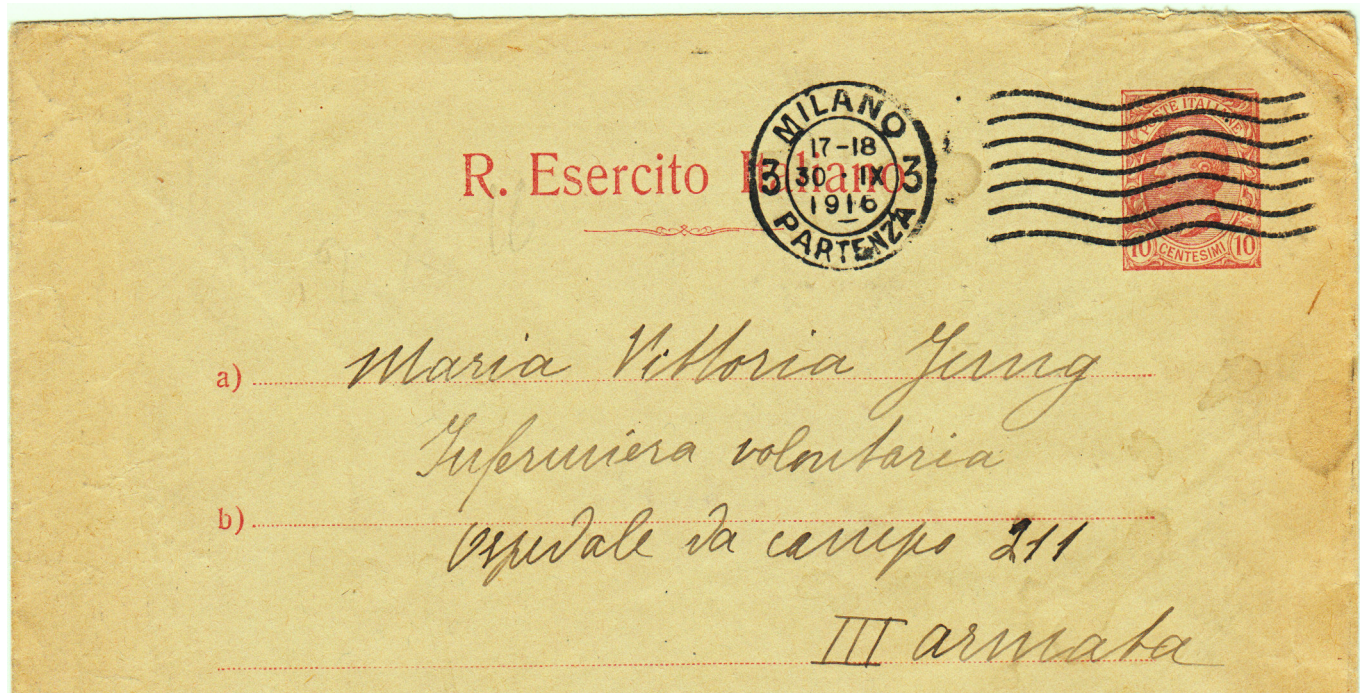 R. Esercito Italiano
MILANO
17-18
3 30·IX 3
1916
PARTENZA
POSTE ITALIANE
10 CENTESIMI 10
a) Maria Vittoria Jung
Infermiera volontaria
b)
Ospedale da campo 211
III armata